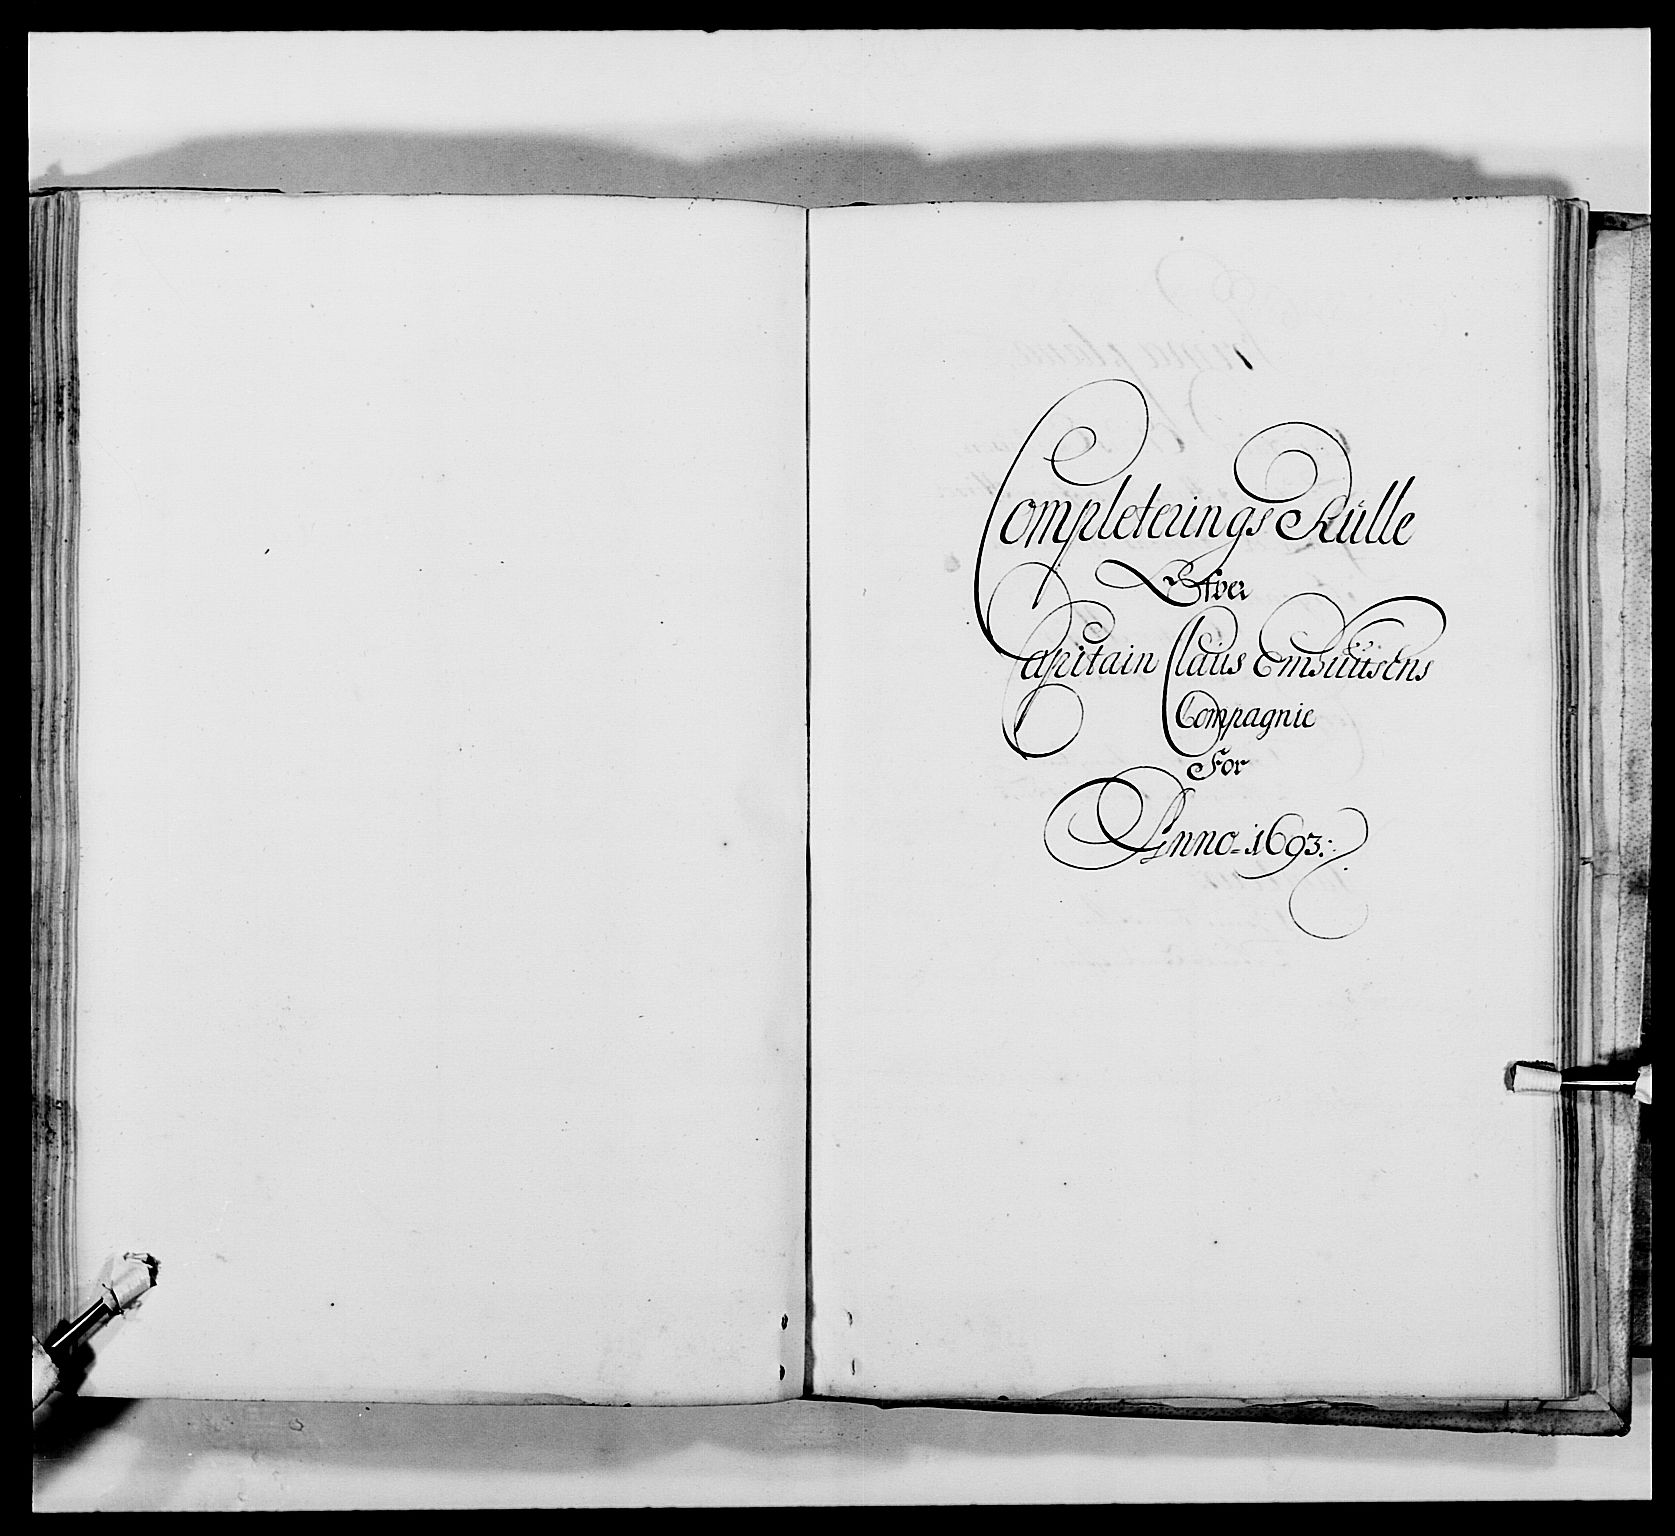 Completerings Rulle
Öfver
Capitain Claus
Compagnie
För
Anno 1693.